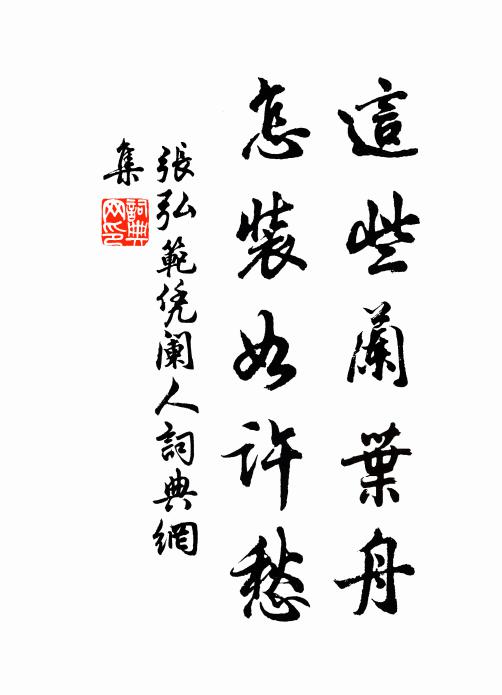 這些蘭葉舟
怎裝如許愁
張弘範凭闌人詞典網
集
詞典
网印